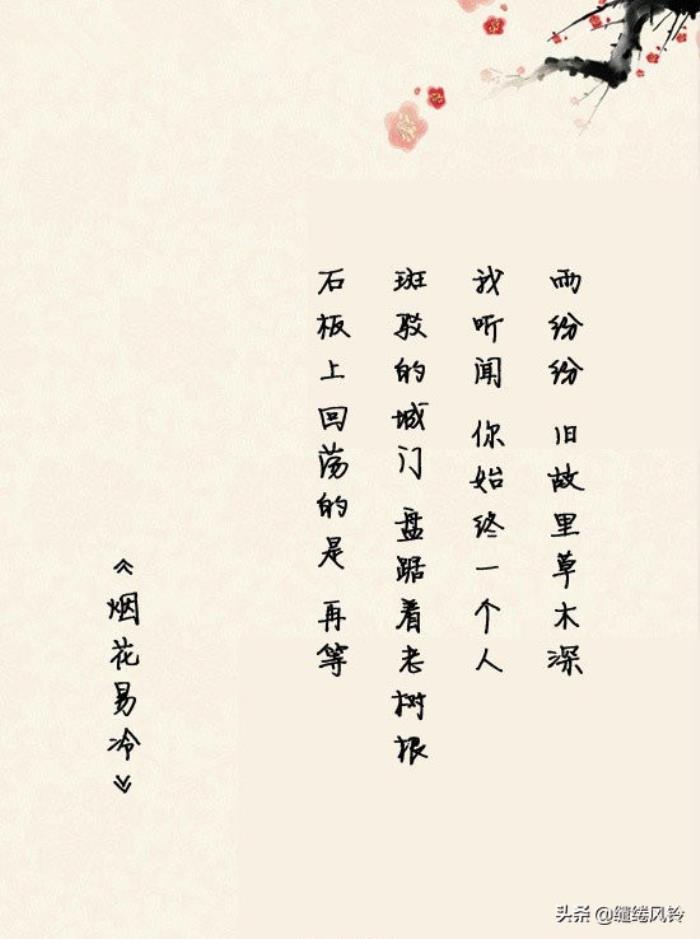 雨纷纷 旧故里草木深
我听闻 你始终一个人
斑驳的城门 盘踞着老树根
石板上回荡的是 再等
《烟花易冷》
头条 @缱绻风铃